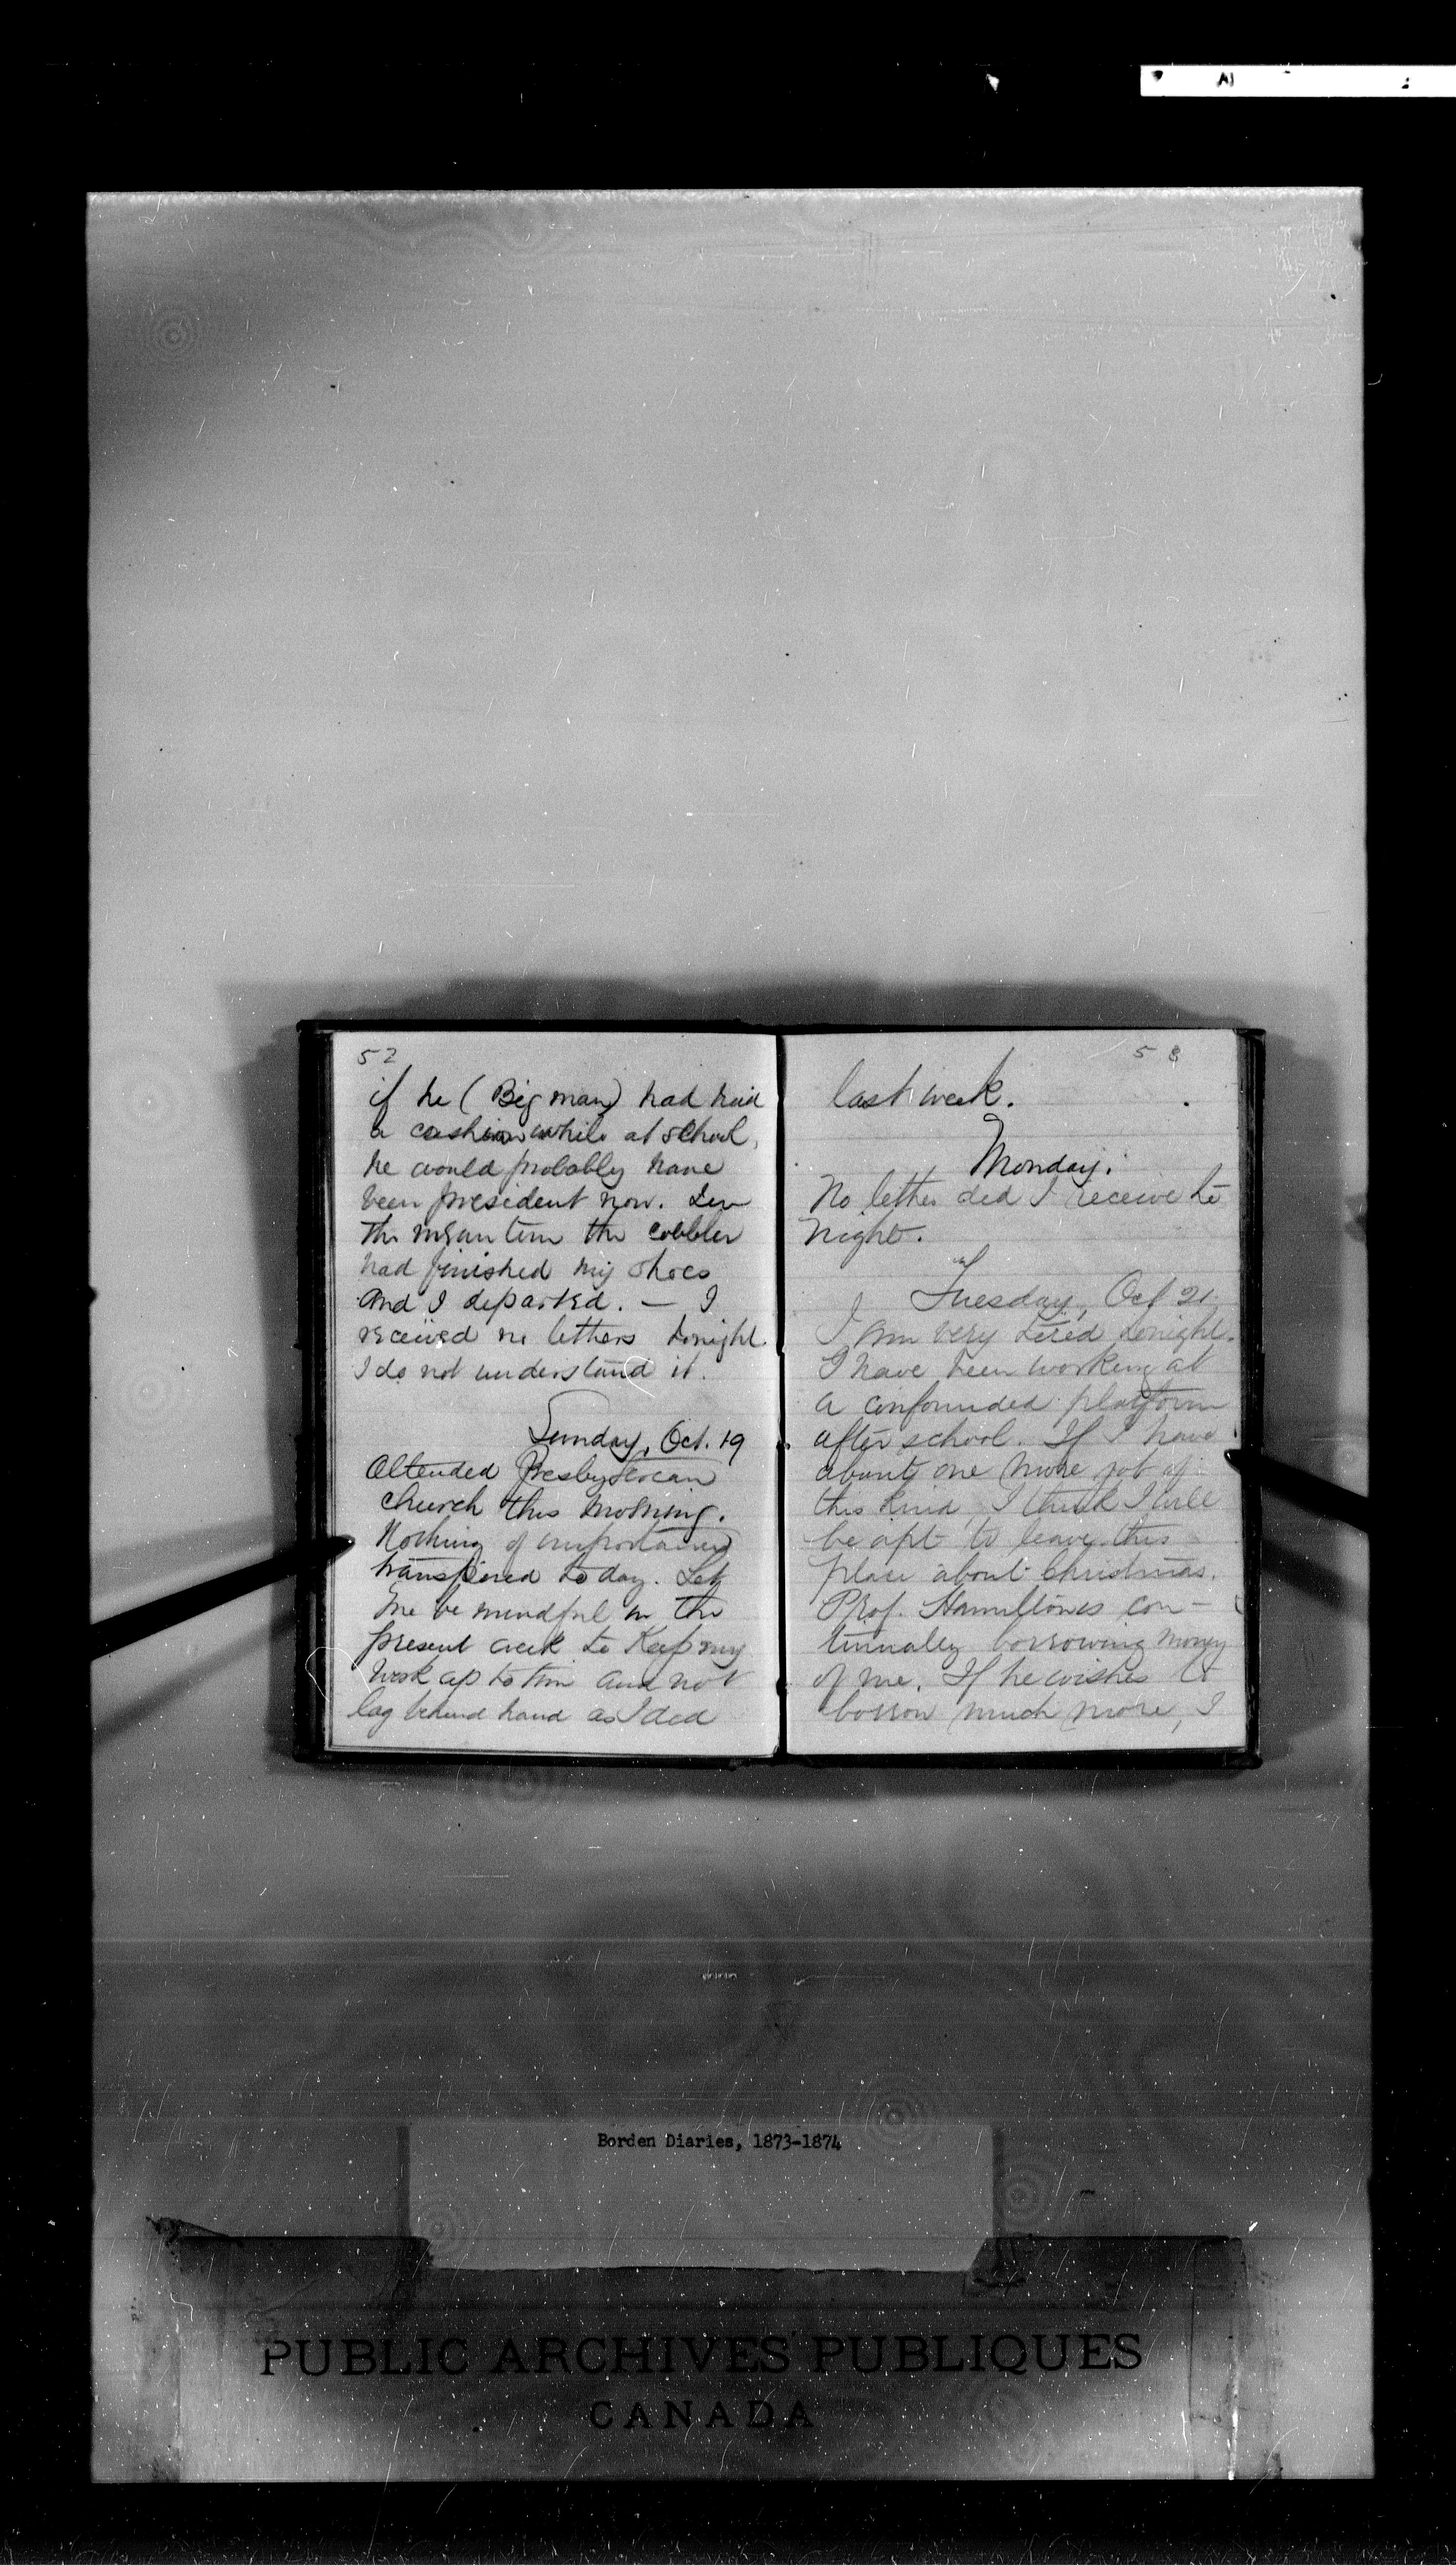 52
if he (Big man) had had
a cushion while at school,
he would probably have
been president now. In
the mean tim the cobbler
had finished my shoes
and I departed. — I
received no letters tonight.
I do not understand it.
Sunday, Oct. 19
Attended Presbyterian
church this morning.
Nothing of importance
transpired to day. Let
me be mindful in the
present week to Keep my
work up to tim and not
lag behind hand as I did
53
last week.
Monday.
No letter did I receive to
night.
Tuesday, Oct 21.
I am very tired tonight.
I have been working at
a confounded platform
after school. If I have
about one more job of
this kind, I think I will
be apt to leave this
place about Christmas.
Prof. Hamilton is con-
tinually borrowing money
of me. If he wishes to
borrow much more, I
Borden Diaries, 1873-1874
PUBLIC ARCHIVES PUBLIQUES
CANADA